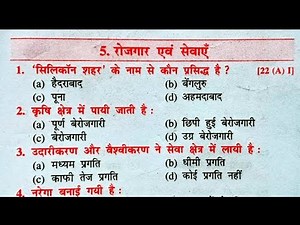 5. रोजगार एवं सेवाएँ
1. 'सिलिकॉन शहर' के नाम से कौन प्रसिद्ध है ? [22 (A) I]
(a) हैदराबाद (b) बेंगलुरु
(c) पूना (d) अहमदाबाद
2. कृषि क्षेत्र में पायी जाती है :
(a) पूर्ण बेरोजगारी (b) छिपी हुई बेरोजगारी
(c) बेरोजगारी (d) उग्र बेरोजगारी
3. उदारीकरण और वैश्वीकरण ने सेवा क्षेत्र में लायी है :
(a) मध्यम प्रगति (b) धीमी प्रगति
(c) काफी तेज प्रगति (d) कोई प्रगति नहीं
4. नरेगा बनाई गयी है :